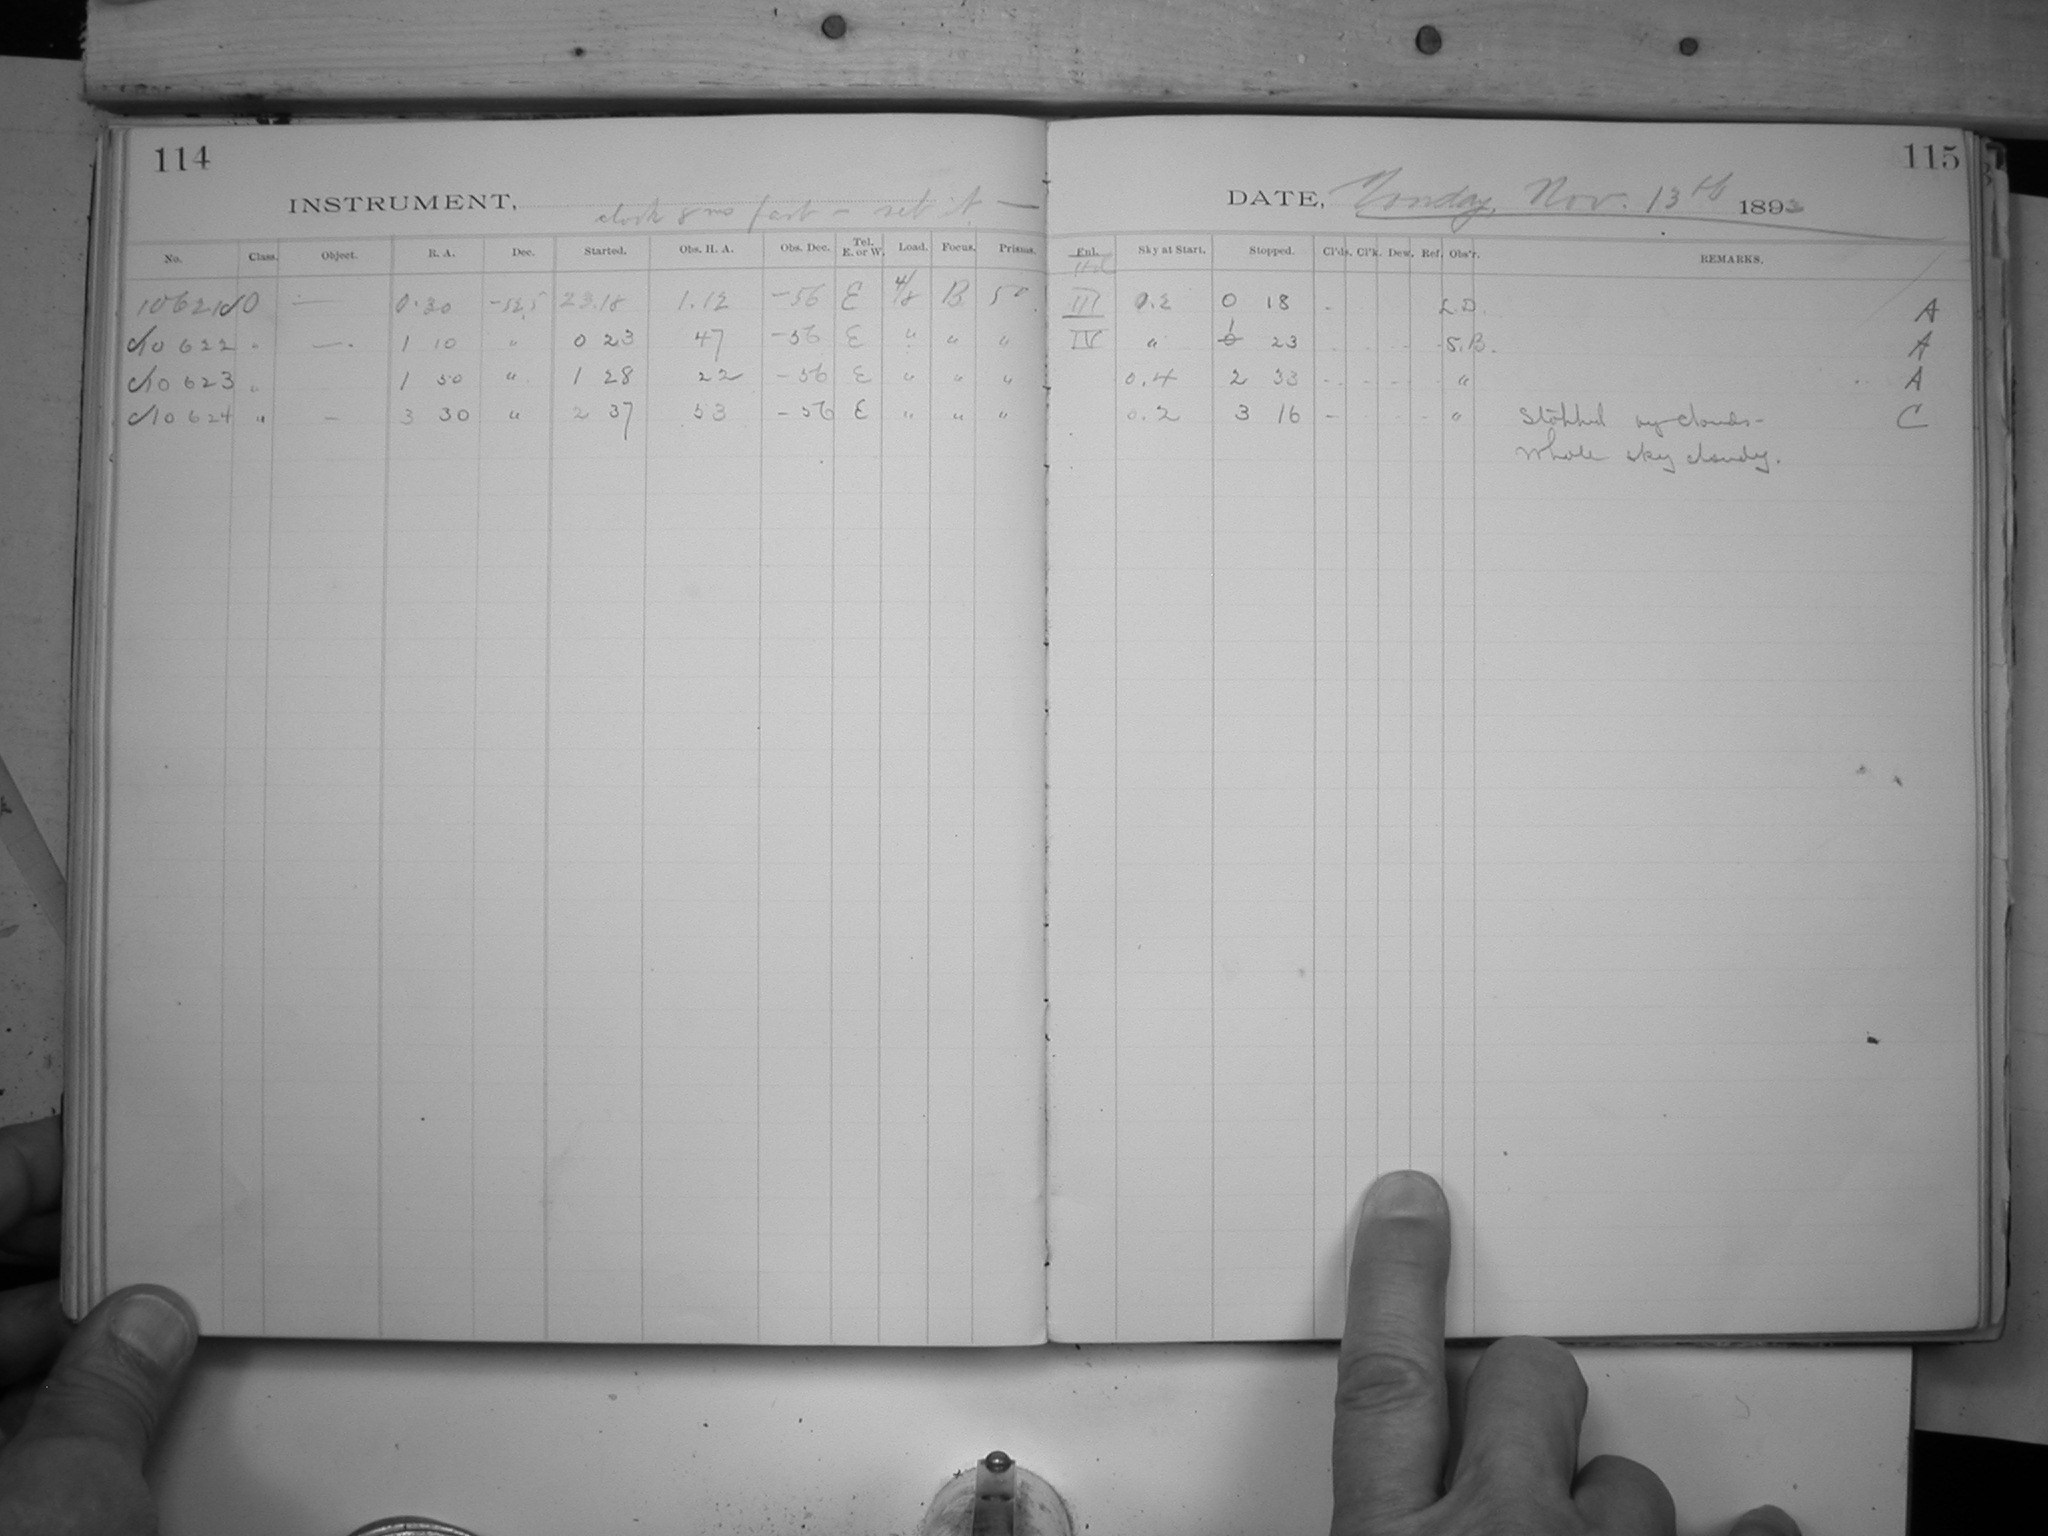 114
INSTRUMENT, clock 8 ms fast – set it —
No. Class. Object. R. A. Dec. Started. Obs. H. A. Obs. Dec. Tel. E. or W. Load. Focus. Prisms.
10621 O — 0.30 -52.5 23.18 1.12 -56 E 4/8 B 50
10622 " — 1 10 " 0 23 47 -56 E " " "
10623 " 1 50 " 1 28 22 -56 E " " "
10624 " — 3 30 " 2 37 53 -56 E " " "
115
DATE, Monday, Nov. 13th 1893
Enl. Sky at Start. Stopped. Cl'ds. Cl'k. Dew. Ref. Obs'r. REMARKS.
III 0.2 0 18 - L.D. A
IV " 1 23 S.B. A
0.4 2 33 " A
0.2 3 16 - " Stopped by clouds – C
Whole sky cloudy.